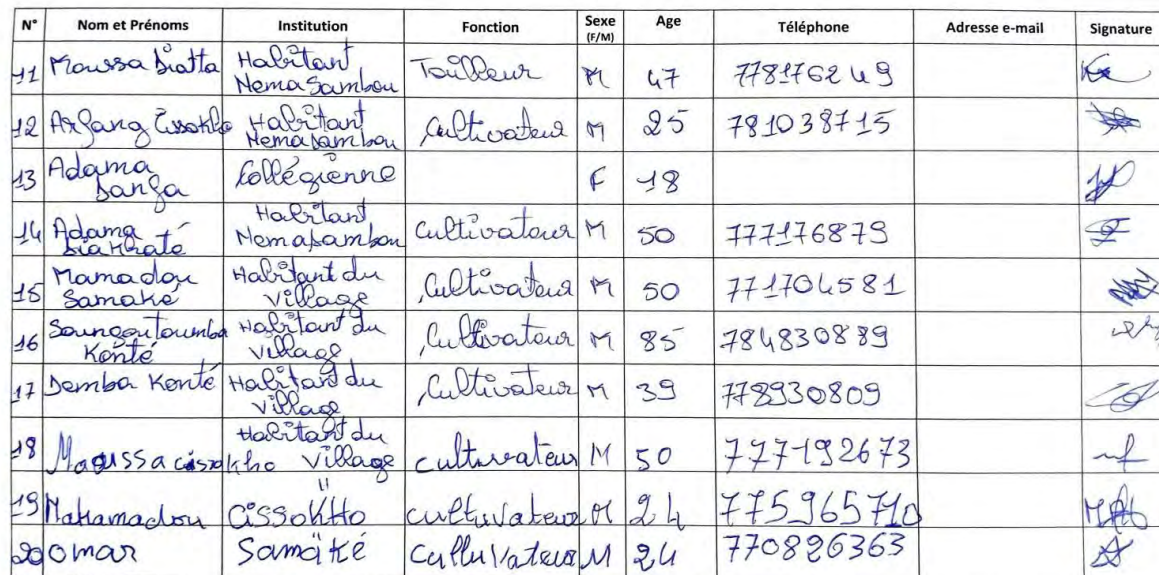 N° Nom et Prénoms Institution Fonction Sexe (F/M) Age Téléphone Adresse e-mail Signature
11 Moussa Diatta Habitant Nema Sambou Tailleur M 47 778176249
12 Arfang Cissokho Habitant Nemasambou Cultivateur M 25 781038715
13 Adama Sanfa Collégienne F 18
14 Adama Diakhaté Habitant Nemasambou Cultivateur M 50 777176879
15 Mamadou Samaké Habitant du village Cultivateur M 50 771704581
16 Soungoutoumba Konté Habitant du village Cultivateur M 85 784830889
17 Demba Konté Habitant du village Cultivateur M 39 778930809
18 Moussa cissokho Habitant du village cultuvateur M 50 777192673
19 Mahamadou CissoKHo " cultuvateur M 24 775965710
20 omar Samaké Culluvateur M 24 770826363